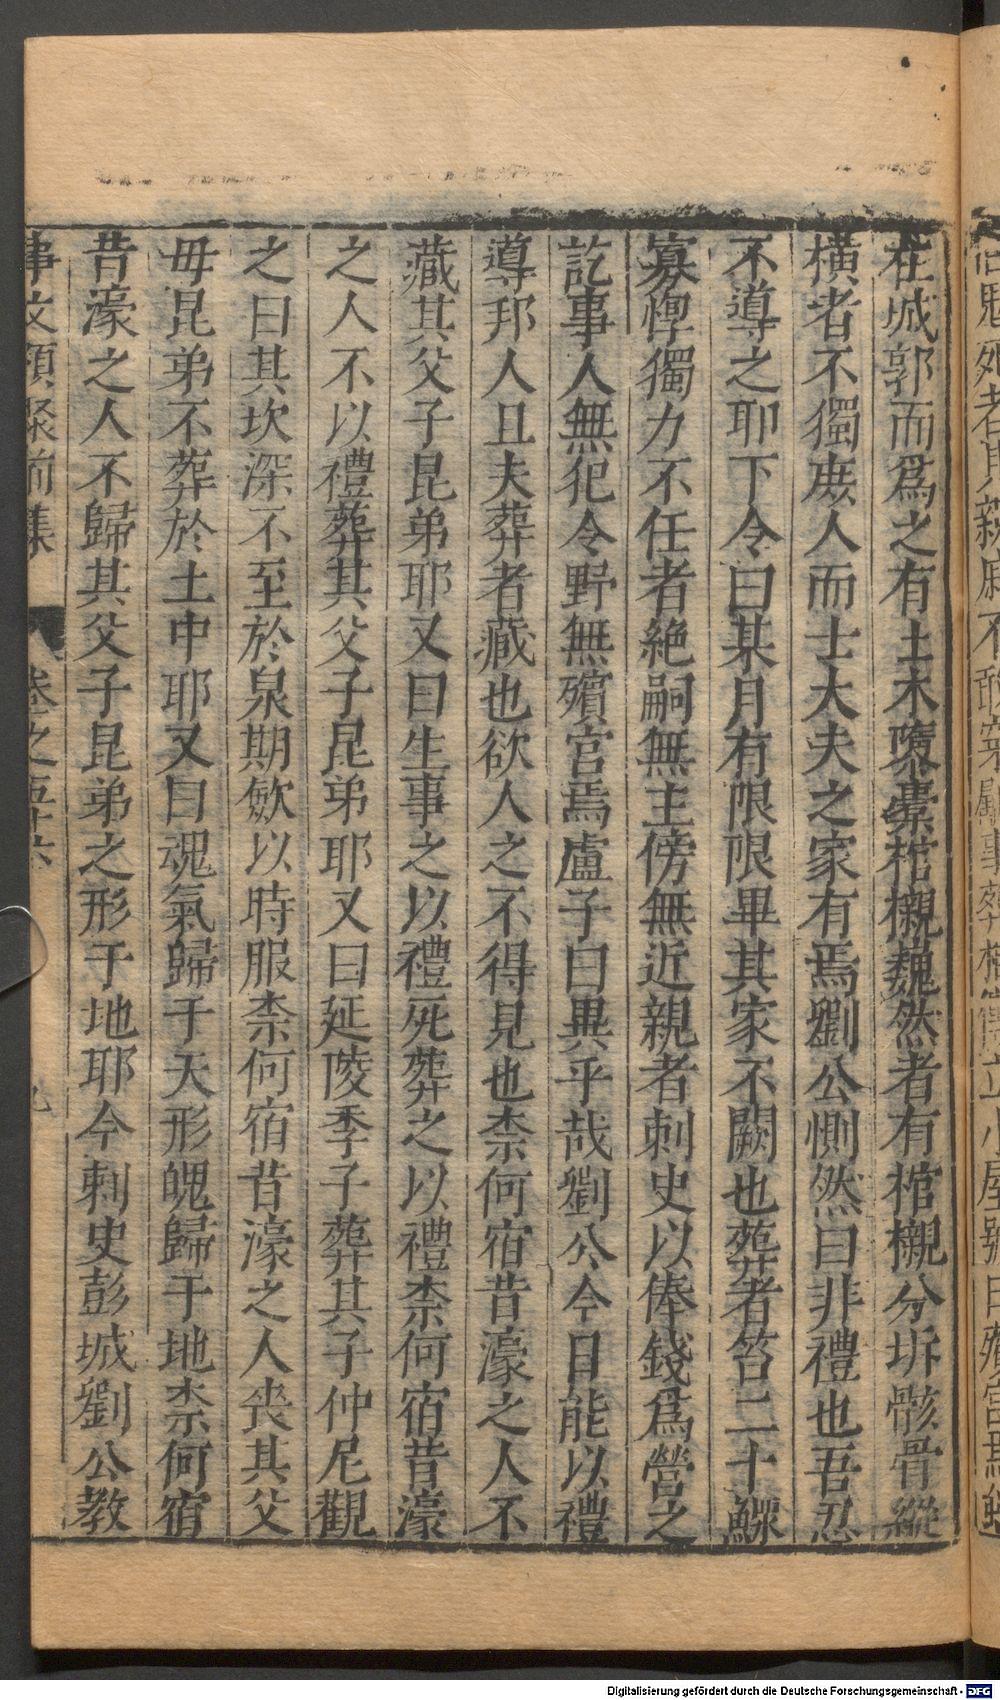 尚鬼死者其親戚不敢穿 事葬 立小屋號曰殯宮
在城郭而爲之有土木隳橐棺櫬巍然者有棺櫬分坼骸骨縱
橫者不獨庶人而士大夫之家有焉劉公惻然曰非禮也吾忍
不導之耶下令曰某月有限限畢其家不闕也葬者笞二十鰥
寡惸獨力不任者絶嗣無主傍無近親者刺史以俸錢爲營之
訖事人無犯令野無殯宮焉盧子曰異乎哉劉公今日能以禮
導邦人且夫葬者藏也欲人之不得見也柰何宿昔濠之人不
藏其父子昆弟耶又曰生事之以禮死葬之以禮柰何宿昔濠
之人不以禮葬其父子昆弟耶又曰延陵季子葬其子仲尼觀
之曰其坎深不至於泉期歛以時服柰何宿昔濠之人喪其父
毋昆弟不葬於土中耶又曰魂氣歸于天形魄歸于地柰何宿
昔濠之人不歸其父子昆弟之形于地耶今刺史彭城劉公教
事文類聚前集 卷之五十六 九
Digitalisierung gefördert durch die Deutsche Forschungsgemeinschaft - DFG